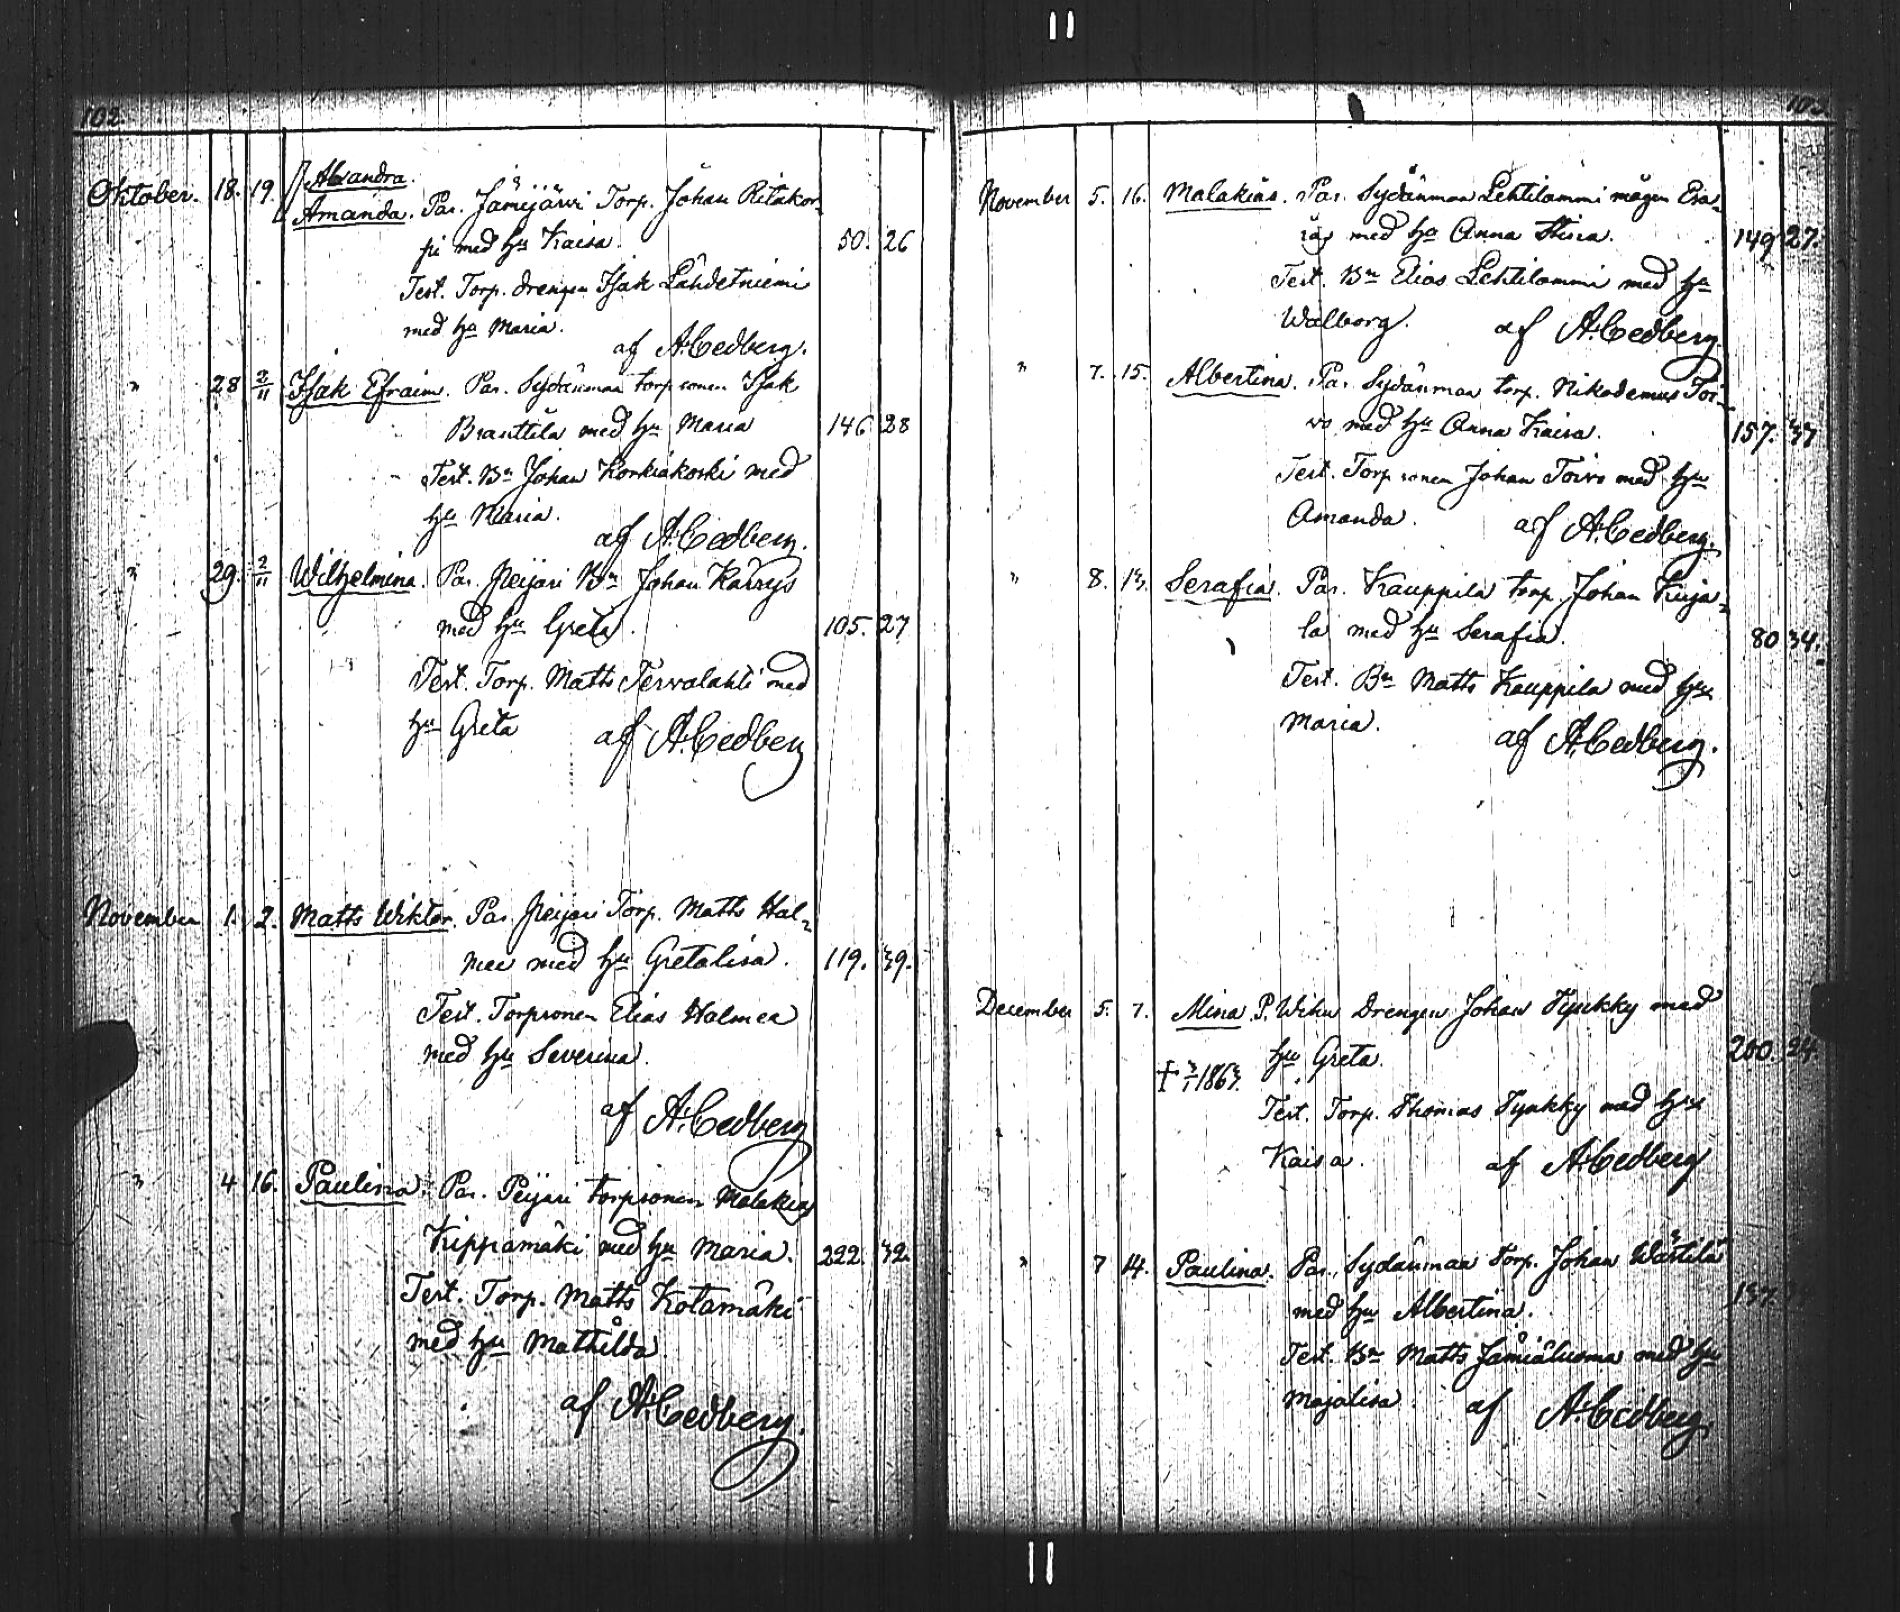 102
Oktober. 18. 19. Alexandra.
Amanda. Par. Jämijärvi Torp. Johan Ritakor-
pi med hu Kaisa. 50. 26
Test. Torp. drengen Isak Lähdetniemi
med hu Maria.
af A. Cedberg.
" 28 2/11 Isak Efraim. Par. Sydänmaa torpsonen Isak
Branttila med hu Maria 146 28
Test. Bn Johan Korkiakoski med
hu Maria.
af A. Cedberg.
" 29. 2/11 Wilhelmina. Par. Peijari Bn Johan Karrys
med hu Greta. 105. 27
Test. Torp. Matts Tervalahti med
hu Greta af A. Cedberg
November 1. 2. Matts Wiktor. Par. Peijari Torp. Matts Hal-
mee med hu Gretalisa. 119. 39.
Test. Torpsonen Elias Halmea
med hu Severina.
af A. Cedberg
" 4 16. Paulina. Par. Peijari torpsonen Malakias
Kippamäki med hu Maria. 222. 32
Test. Torp. Matts Kotamäki
med hu Mathilda.
af A. Cedberg.
103
November 5. 16. Malakias. Par. Sydänmaa Lehtilammi mågen Esa-
ias med hu Anna Stina. 149 27.
Test. Bn Elias Lehtilammi med hu
Walborg. af A. Cedberg.
" 7. 15. Albertina. Par. Sydänmaa torp. Nikodemus Toi-
vo med hu Anna Kaisa. 157. 37
Test. Torpsonen Johan Toivo med hu
Amanda. af A. Cedberg.
" 8. 13. Serafia. Par. Kauppila torp. Johan Kuja-
la med hu Serafia. 80 34.
Test. Bn Matts Kauppila med hu
Maria. af A. Cedberg.
December 5. 7. Mina. P. Wihu Drengen Johan Tyukky med
hu Greta. 200. 24.
† 3/1 1863.
Test. Torp. Thomas Tyukky med hu
Kaisa. af A. Cedberg
" 7 14. Paulina. Par. Sydänmaa Torp. Johan Wästilä
med hu Albertina. 157.
Test. Bn Matts Jämiäluoma med hu
Majalisa. af A. Cedberg.